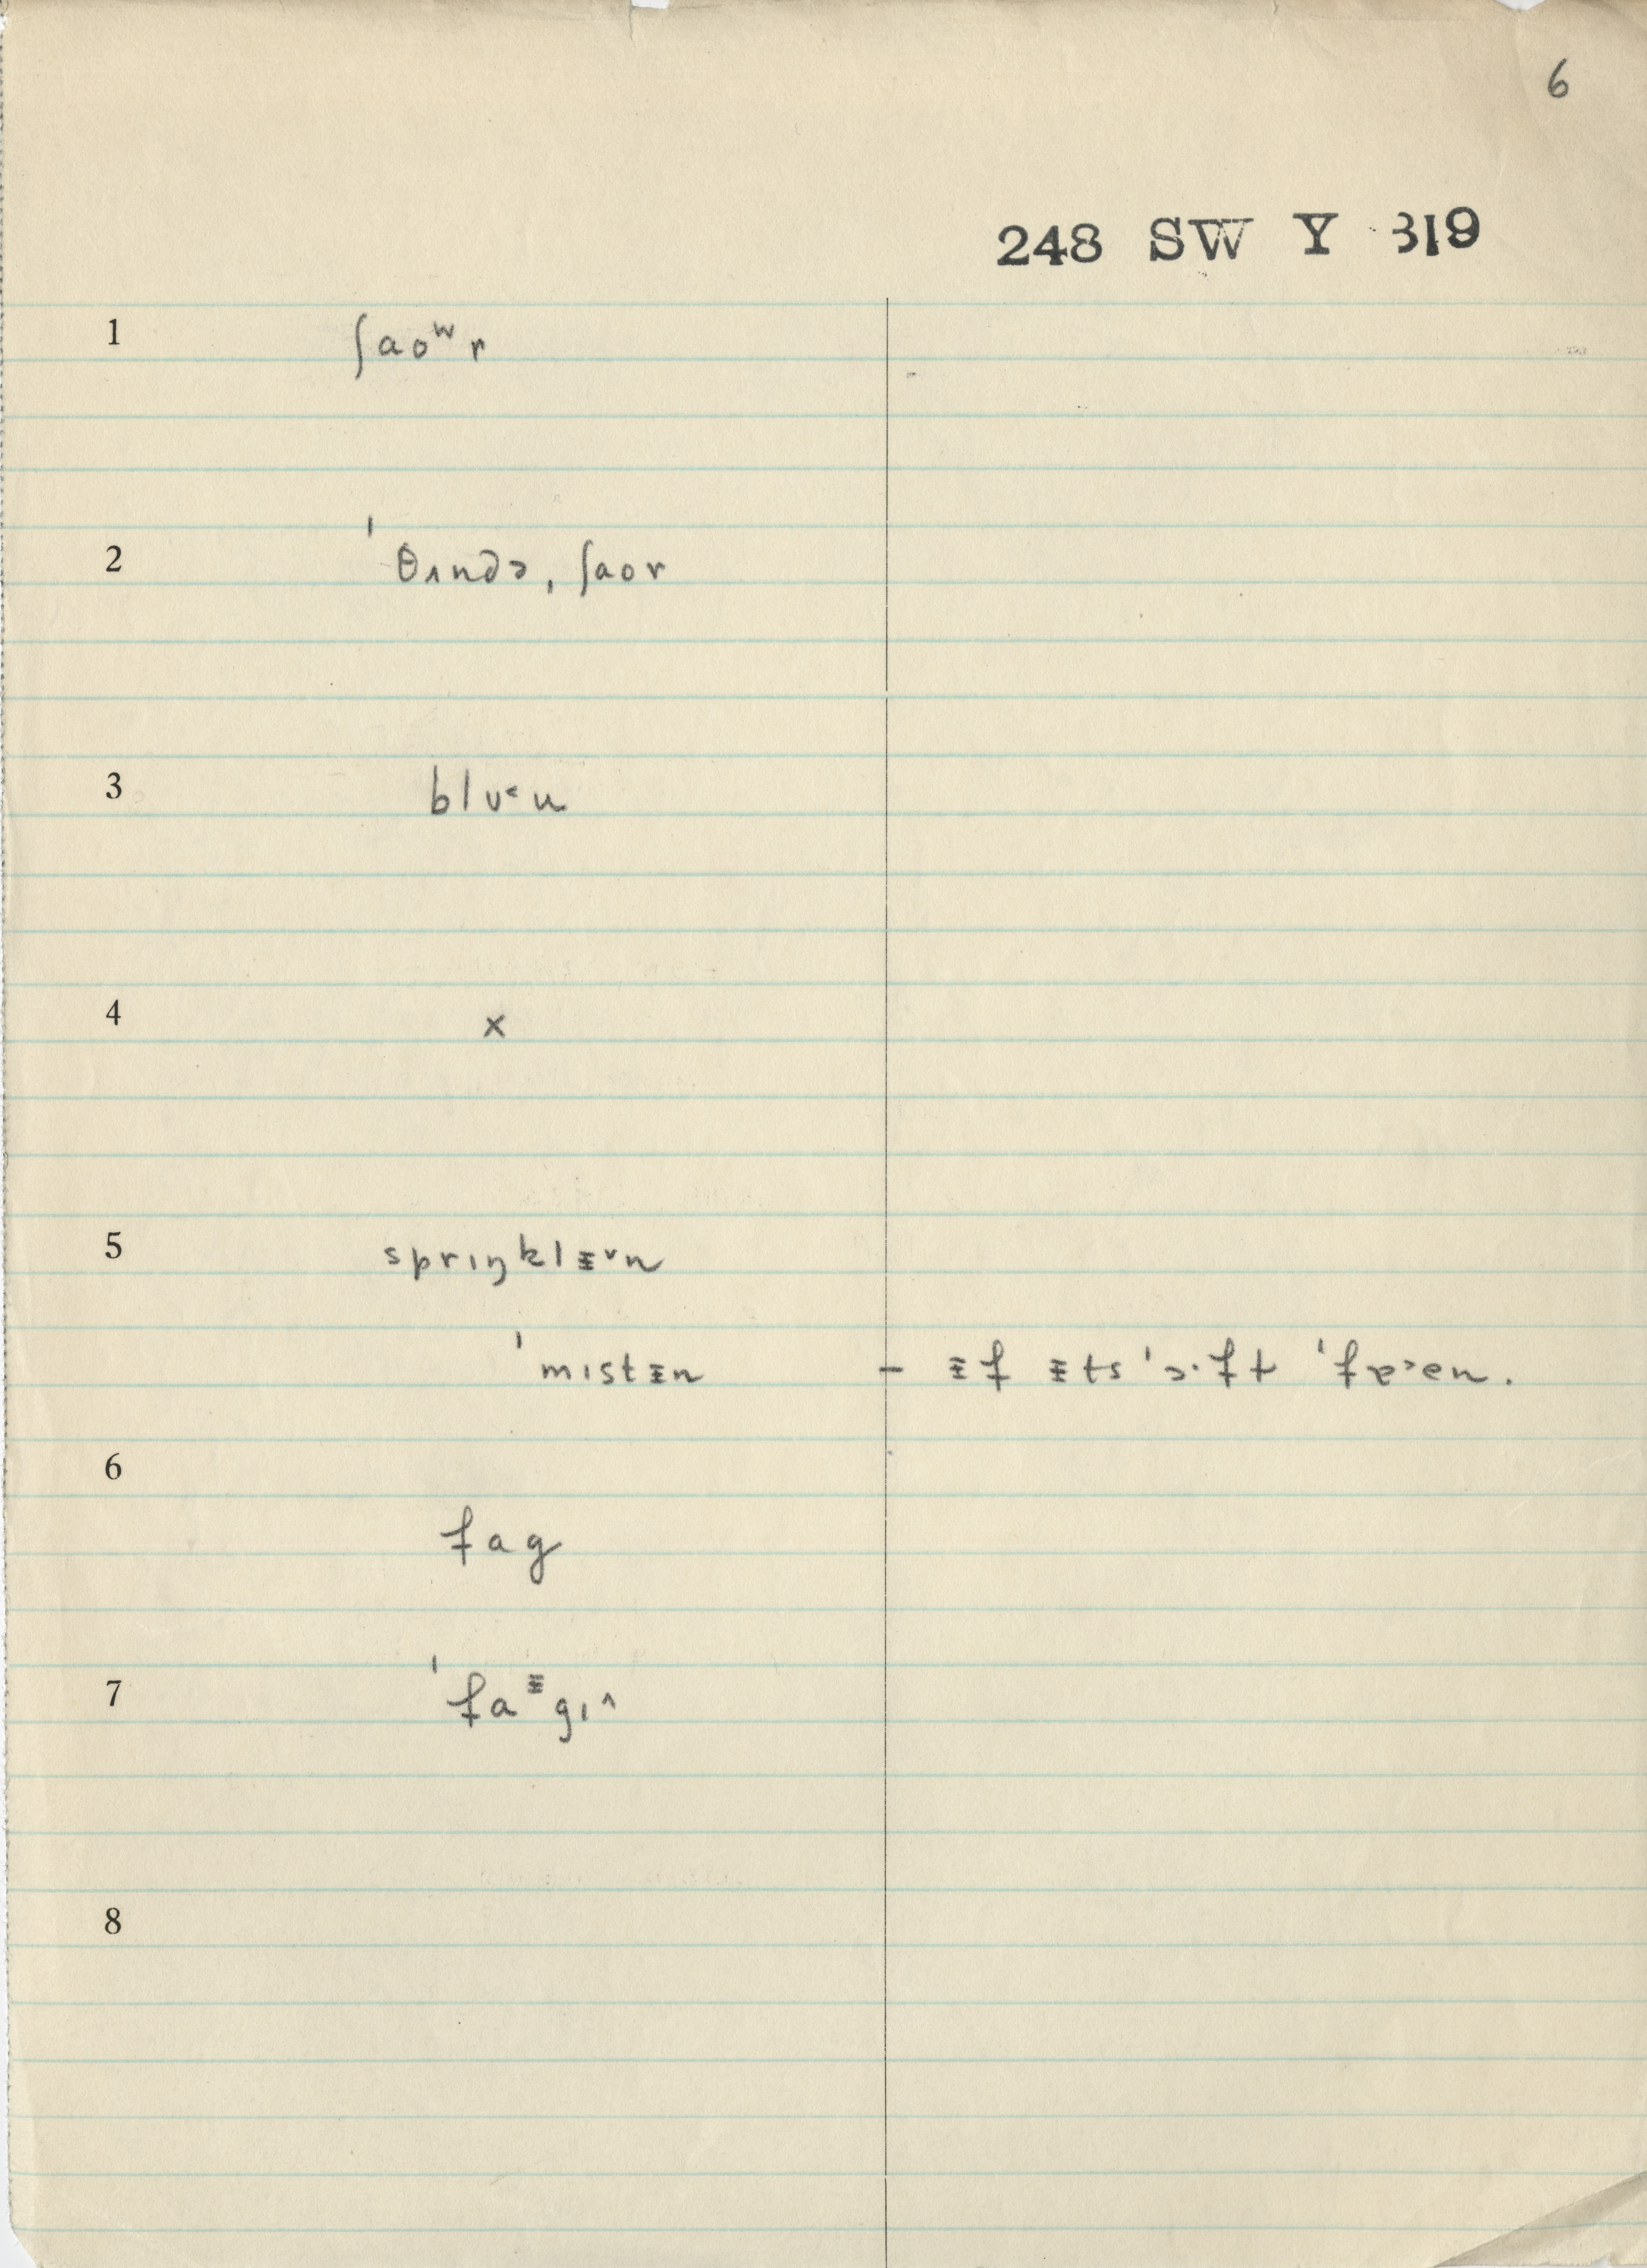 6
248 SW Y 319
1 ʃaoʷr
2 ˈθʌndɚ ˌʃaor
3 blu˂u
4 x
5 sprɪŋklɪ̵˅n
ˈmɪstɪ̵n – ɪ̵f ɪ̵ts ˈɔ·ft ˈfɐ˃en.
6 fag
7 ˈfaᵻgɪ˄
8